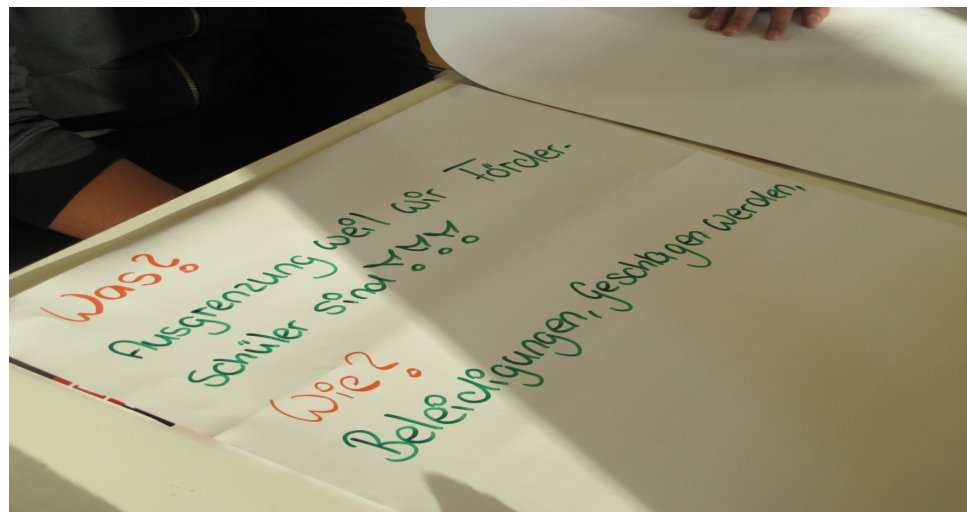 Was?
Ausgrenzung weil wir Förder-
schüler sind!!!
Wie?
Beleidigungen, geschlagen werden,